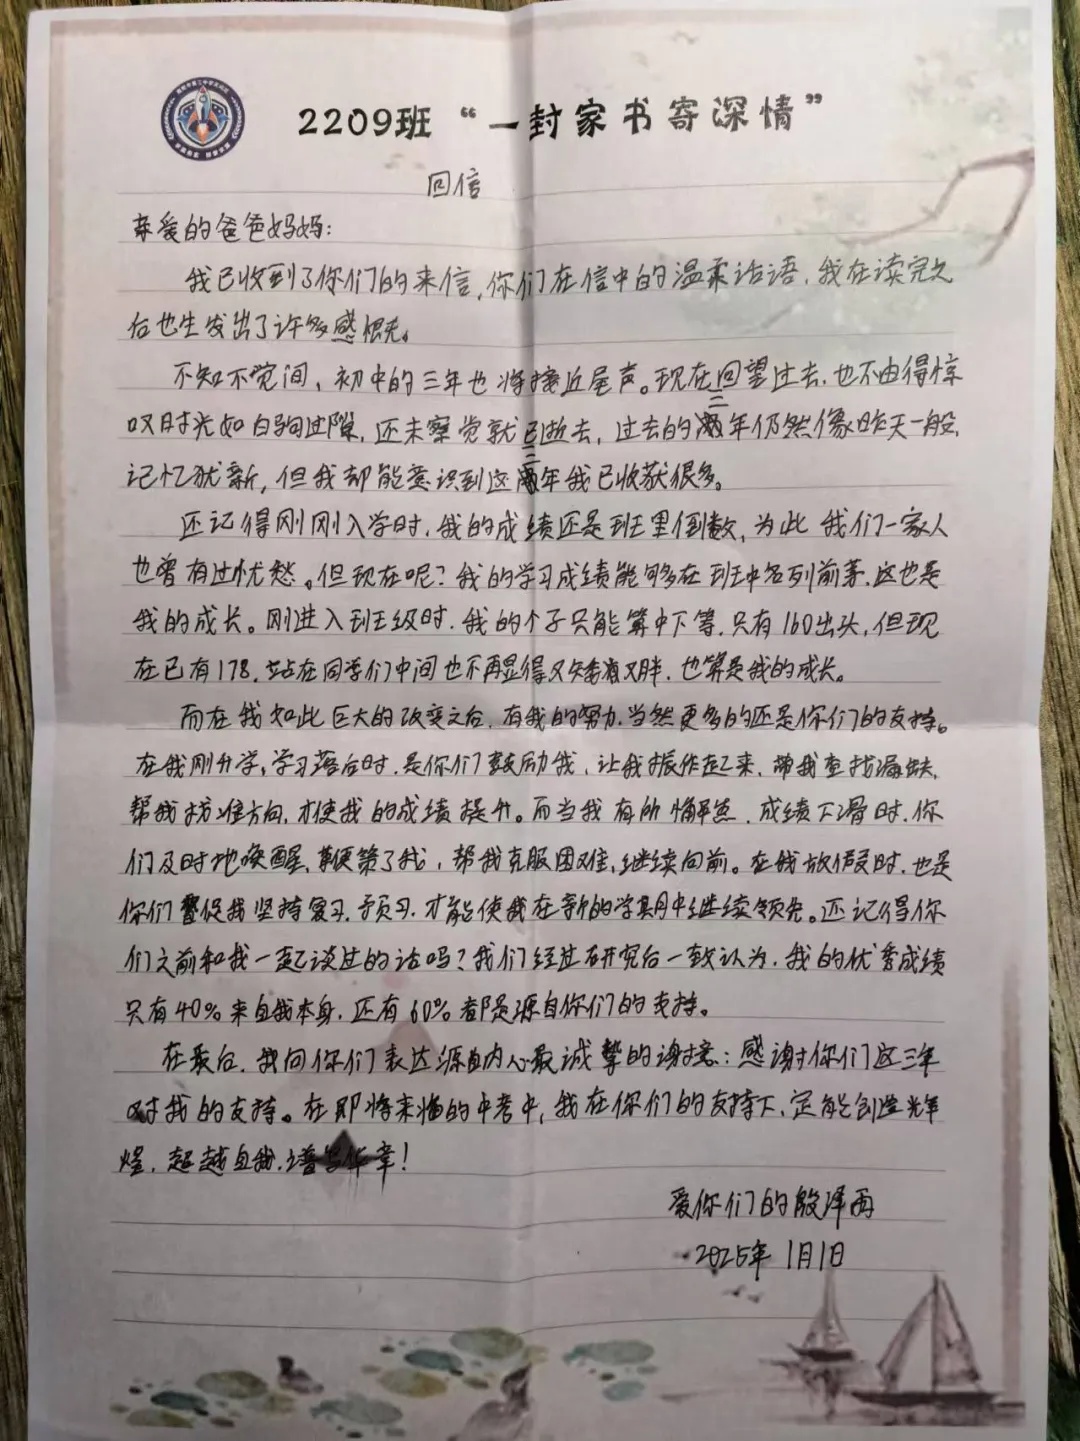 2209班“一封家书寄深情”
回信
亲爱的爸爸妈妈：
我已收到了你们的来信，你们在信中的温柔话语，我在读完之
后也生发出了许多感慨。
不知不觉间，初中的三年也将接近尾声。现在回望过去，也不由得惊
叹时光如白驹过隙，还未察觉就已逝去，过去的三年仍然像昨天一般，
记忆犹新，但我却能意识到这三年我已收获很多。
还记得刚刚入学时，我的成绩还是班里倒数，为此我们一家人
也曾有过忧愁。但现在呢？我的学习成绩能够在班中名列前茅，这也是
我的成长。刚进入班级时，我的个子只能算中下等，只有160出头，但现
在已有178，站在同学们中间也不再显得又矮又胖，也算是我的成长。
而在我如此巨大的改变之后，有我的努力，当然更多的还是你们的支持。
在我刚升学，学习落后时，是你们鼓励我，让我振作起来，帮我查找漏缺，
帮我找准方向，才使我的成绩提升。而当我有所懈怠，成绩下滑时，你
们及时地唤醒，鞭策了我，帮我克服困难，继续向前。在我放假时，也是
你们督促我坚持复习、预习，才能使我在新的学期中继续领先。还记得你
们之前和我一起谈过的话吗？我们经过研究后一致认为，我的优秀成绩
只有40%来自我本身，还有60%都是源自你们的支持。
在最后，我向你们表达源自内心最诚挚的谢意：感谢你们这三年
对我的支持。在即将来临的中考中，我在你们的支持下，定能创造辉
煌，超越自我，谱写华章！
爱你们的殷泽雨
2025年1月1日